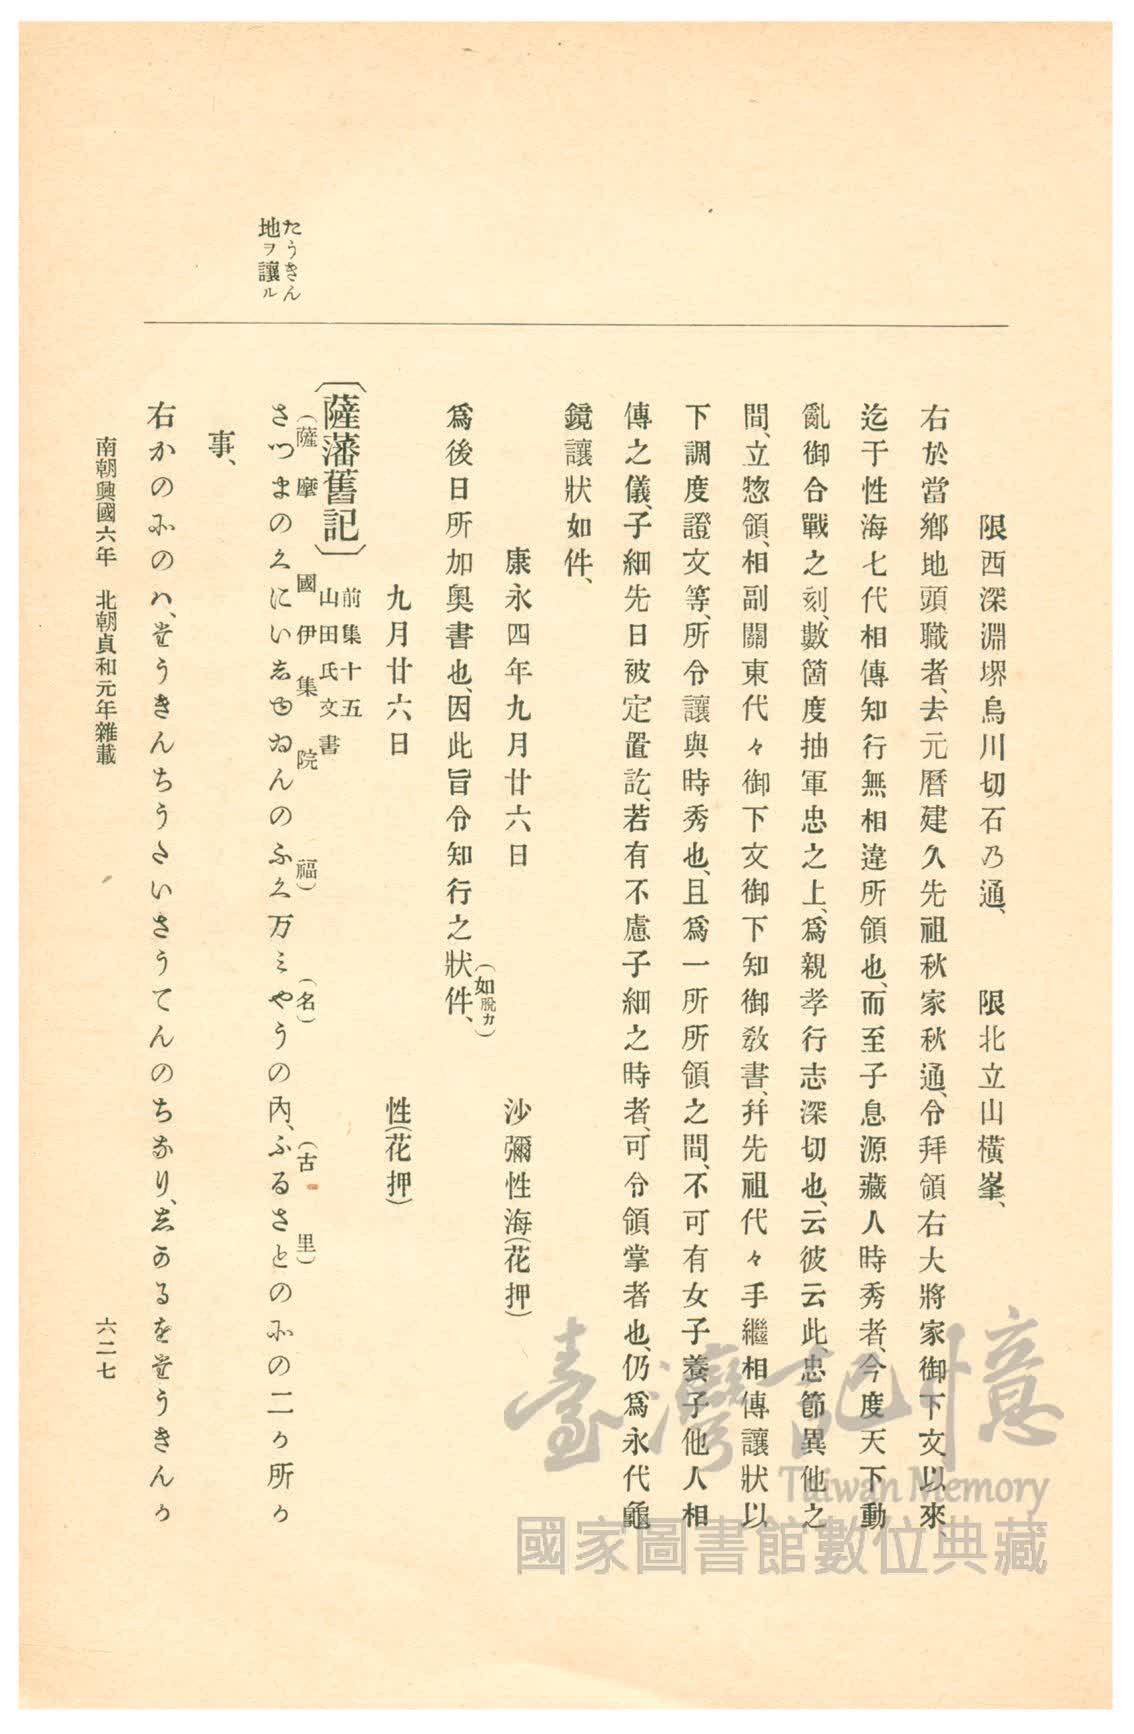 限西深淵堺烏川切石乃通、　限北立山橫峯、
右於當鄕地頭職者、去元曆建久先祖秋家秋通、令拜領右大將家御下文以來、
迄于性海七代相傳知行無相違所領也、而至子息源藏人時秀者、今度天下動
亂御合戰之刻、數箇度抽軍忠之上、爲親孝行志深切也、云彼云此忠節異他之
間、立惣領、相副關東代々御下文御下知御敎書、幷先祖代々手繼相傳讓狀以
下調度證文等、所令讓與時秀也、且爲一所所領之間、不可有女子養子他人相
傳之儀、子細先日被定置訖、若有不慮子細之時者、可令領掌者也、仍爲永代龜
鏡讓狀如件、
康永四年九月廿六日　沙彌性海(花押)
爲後日所加奧書也、因此旨令知行之狀件、
(如脫カ)
九月廿六日　性(花押)
たうきん
地ヲ讓ル
〔薩藩舊記〕
前集十五
山田氏文書
(薩摩國伊集院福)(名)(古里)
さつまのくにいしゆゐんのふく万ミやうの內、ふるさとのその二ヶ所か
事、
右かのそのハ、たうきんちうたいさうてんのちなり、しかるをたうきんか
南朝興國六年　北朝貞和元年雜載
六二七
臺灣記憶
Taiwan Memory
國家圖書館數位典藏